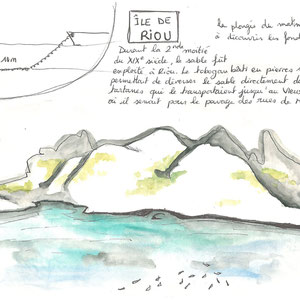 ÎLE DE
RIOU
La plongée du matin
à découvrir les fond
Durant la 2nde moitié
du XIXe siècle, le sable fût
exploité à Riou. Le toboggan bâti en pierres
permettait de diverser le sable directement d
tartanes qui le transportaient jusqu'au Vieux
où il servait pour le pavage des rues de